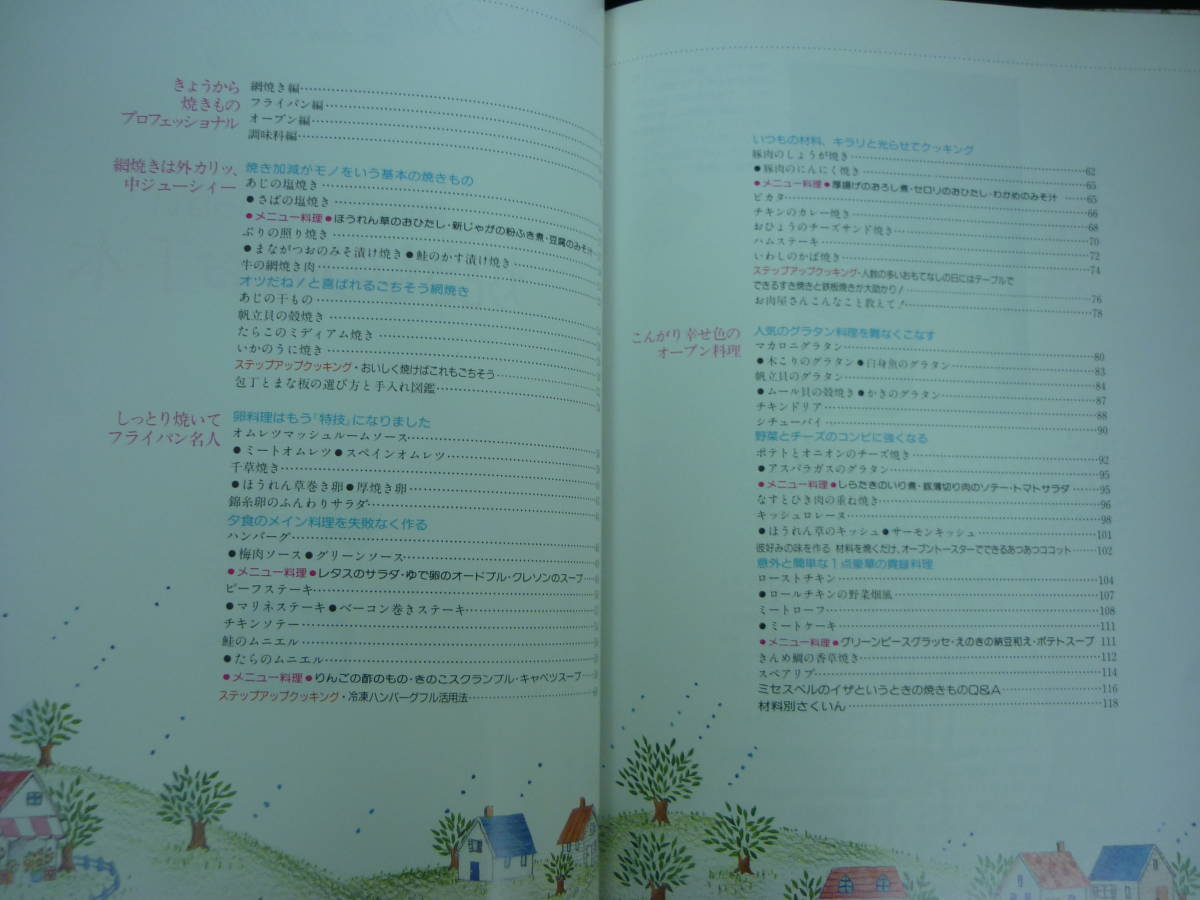 きょうから
焼きもの
プロフェッショナル
網焼き編
フライパン編
オーブン編
調味料編
網焼きは外カリッ、
中ジューシィー
焼き加減がモノをいう基本の焼きもの
あじの塩焼き
●さばの塩焼き
●メニュー料理●ほうれん草のおひたし・新じゃがの粉ふき煮・豆腐のみそ汁
ぶりの照り焼き
●まながつおのみそ漬け焼き●鮭のかす漬け焼き
牛の網焼き肉
オツだね!と喜ばれるごちそう網焼き
あじの干もの
帆立貝の殻焼き
たらこのミディアム焼き
いかのうに焼き
ステップアップクッキング・おいしく焼けばこれもごちそう
包丁とまな板の選び方と手入れ図鑑
しっとり焼いて
フライパン名人
卵料理はもう「特技」になりました
オムレツマッシュルームソース
●ミートオムレツ●スペインオムレツ
千草焼き
●ほうれん草巻き卵●厚焼き卵
錦糸卵のふんわりサラダ
夕食のメイン料理を失敗なく作る
ハンバーグ
●梅肉ソース●グリーンソース
●メニュー料理●レタスのサラダ・ゆで卵のオードブル・クレソンのスープ
ビーフステーキ
●マリネステーキ●ベーコン巻きステーキ
チキンソテー
鮭のムニエル
●たらのムニエル
●メニュー料理●りんごの酢のもの・きのこスクランブル・キャベツスープ
ステップアップクッキング・冷凍ハンバーグフル活用法
いつもの材料、キラリと光らせてクッキング
豚肉のしょうが焼き 62
●豚肉のにんにく焼き 65
●メニュー料理●厚揚げのおろし煮・セロリのおひたし・わかめのみそ汁 65
ピカタ 66
チキンのカレー焼き 68
おひょうのチーズサンド焼き 70
ハムステーキ 72
いわしのかば焼き 74
ステップアップクッキング・人数の多いおもてなしの日にはテーブルで
できるすき焼きと鉄板焼きが大助かり! 76
お肉屋さんこんなこと教えて! 78
こんがり幸せ色の
オーブン料理
人気のグラタン料理を難なくこなす
マカロニグラタン 80
●木こりのグラタン●白身魚のグラタン 83
帆立貝のグラタン 84
●ムール貝の殻焼き●かきのグラタン 87
チキンドリア 88
シチューパイ 90
野菜とチーズのコンビに強くなる
ポテトとオニオンのチーズ焼き 92
●アスパラガスのグラタン 95
●メニュー料理●しらたきのいり煮・豚薄切り肉のソテー・トマトサラダ 95
なすとひき肉の重ね焼き 96
キッシュロレーヌ 98
●ほうれん草のキッシュ●サーモンキッシュ 101
彼好みの味を作る 材料を焼くだけ、オーブントースターでできるあつあつココット 102
意外と簡単な1点豪華の貫録料理
ローストチキン 104
●ロールチキンの野菜畑風 107
ミートローフ 108
●ミートケーキ 111
●メニュー料理●グリーンピースグラッセ・えのきの納豆和え・ポテトスープ 111
きんめ鯛の香草焼き 112
スペアリブ 114
ミセスベルのイザというときの焼きものQ&A 116
材料別さくいん 118